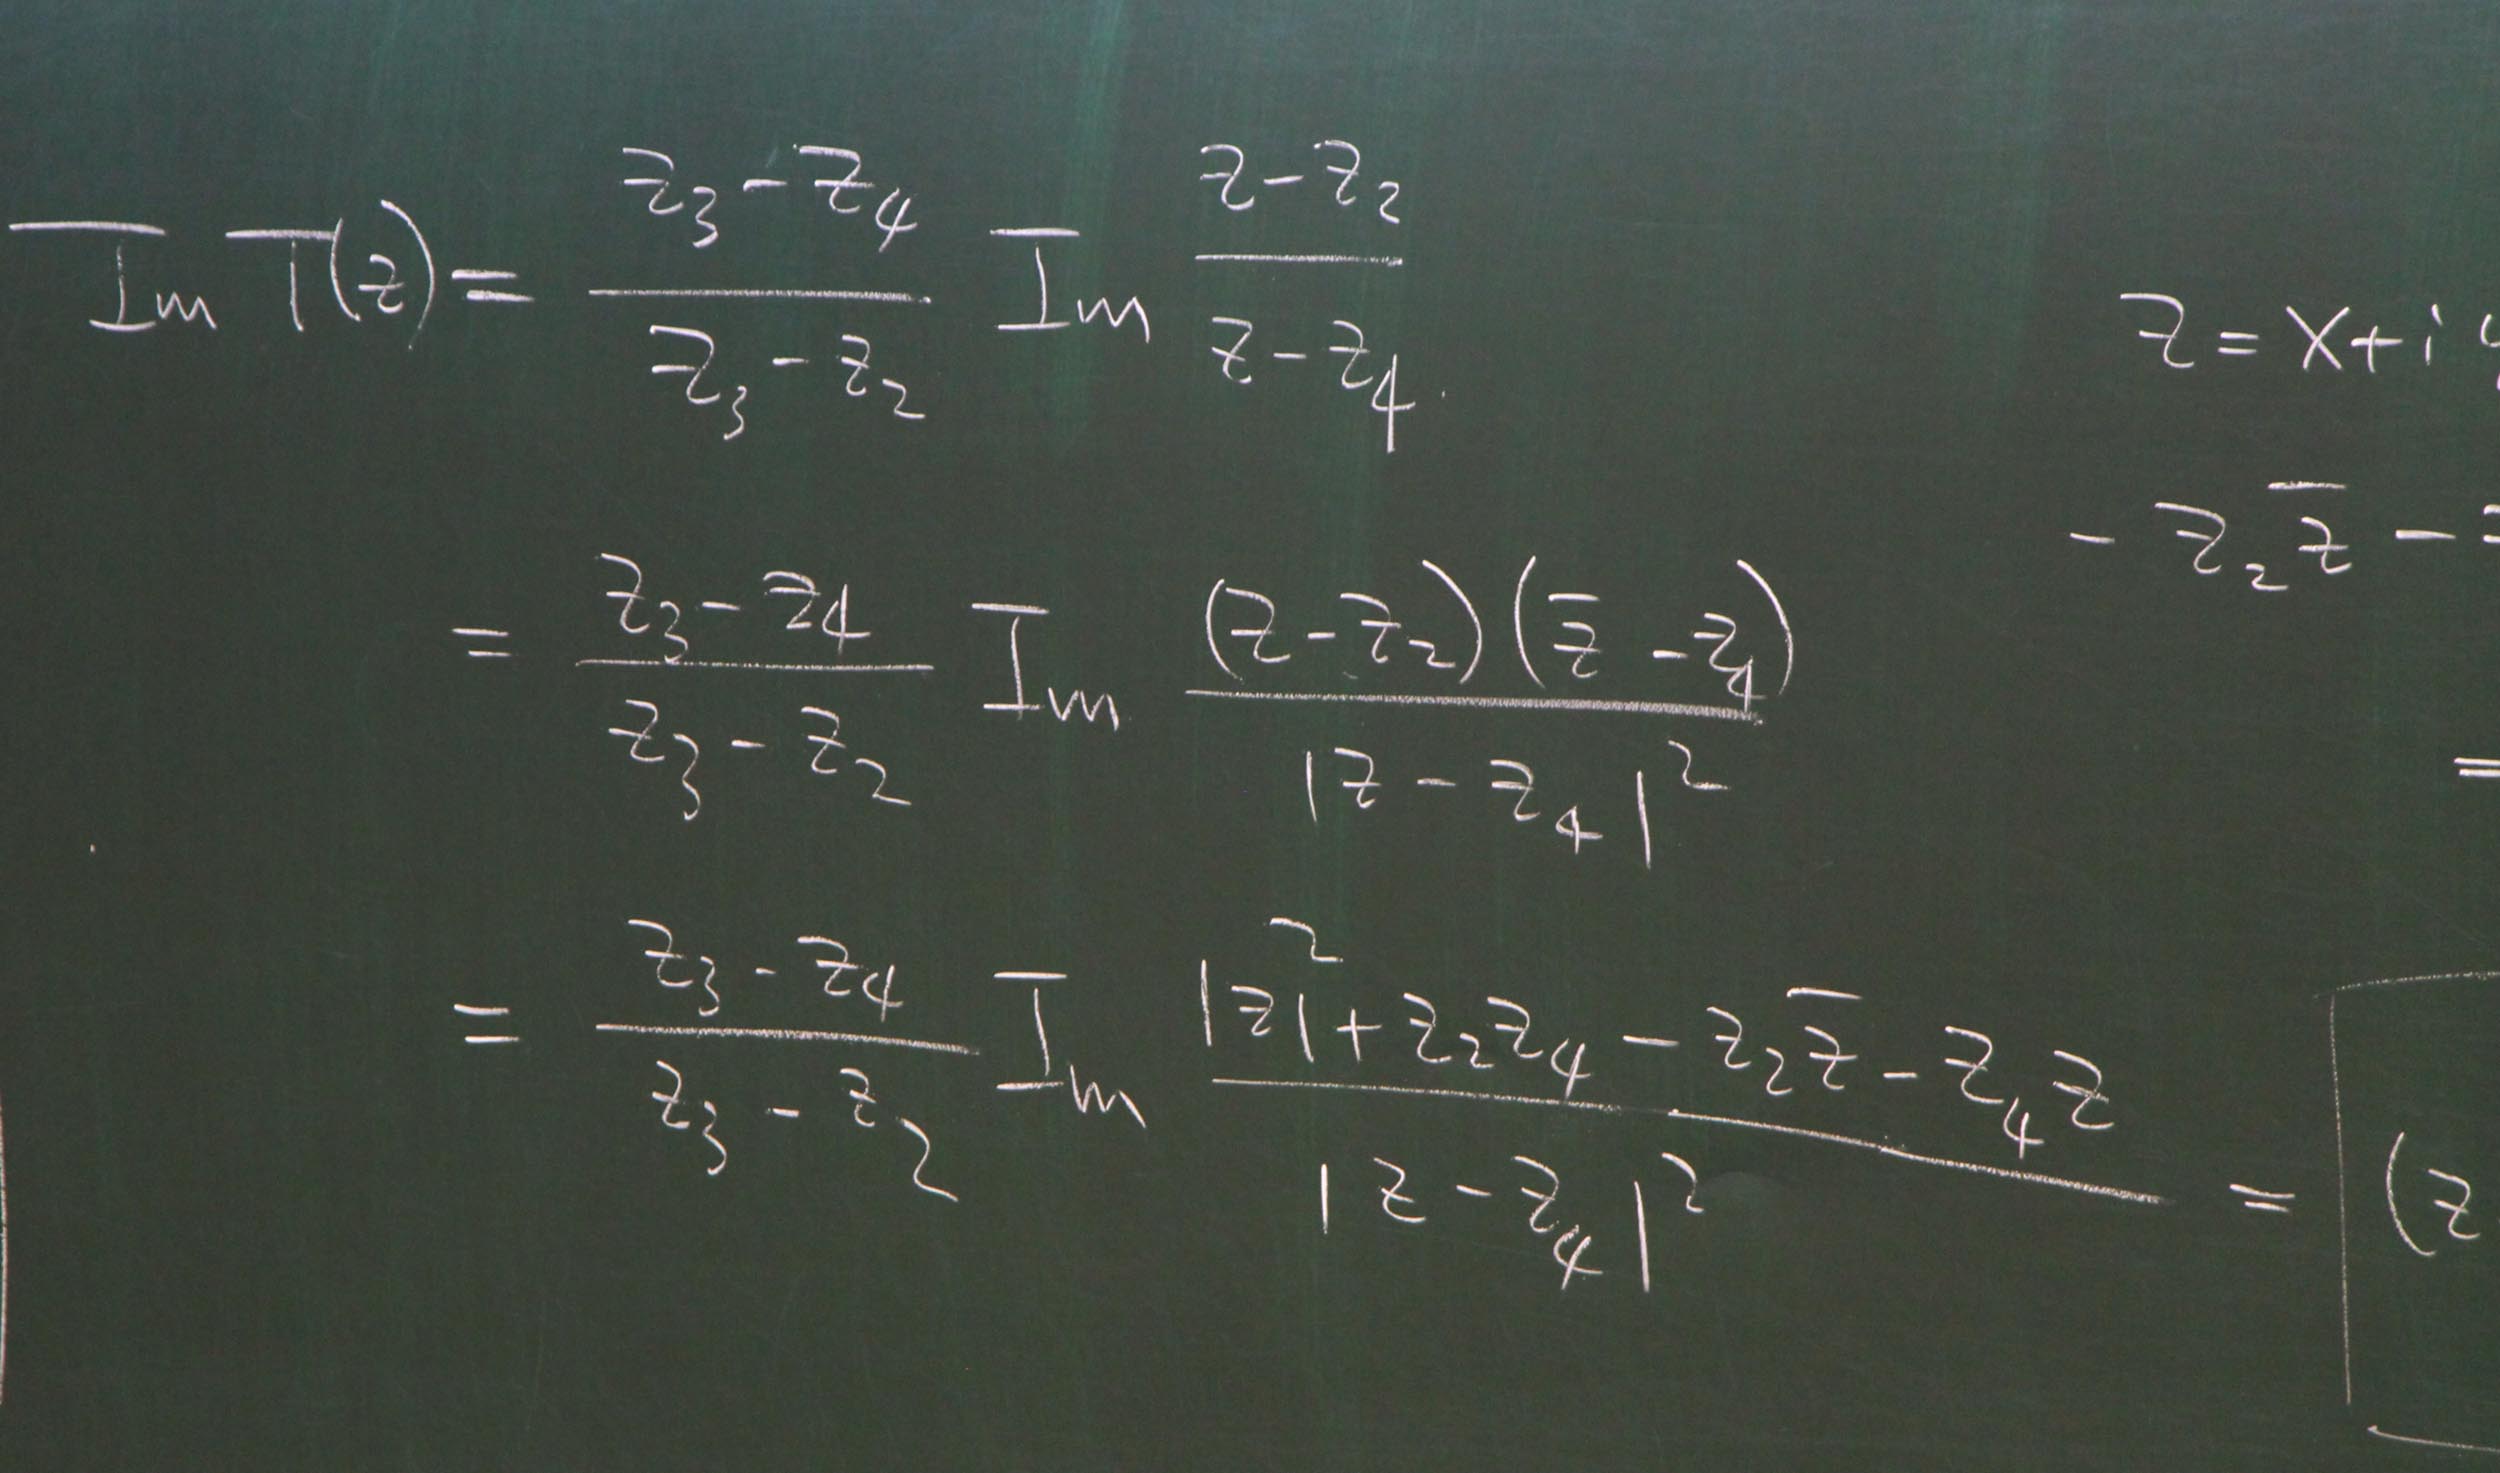 Im T(z) = \frac{z_3 - z_4}{z_3 - z_2} Im \frac{z - z_2}{z - z_4}
= \frac{z_3 - z_4}{z_3 - z_2} Im \frac{(z - z_2)(\bar{z} - z_4)}{|z - z_4|^2}
= \frac{z_3 - z_4}{z_3 - z_2} Im \frac{|z|^2 + z_2 z_4 - z_2 \bar{z} - z_4 z}{|z - z_4|^2} =
z = x + i
- z_2 \bar{z} -
=
(z